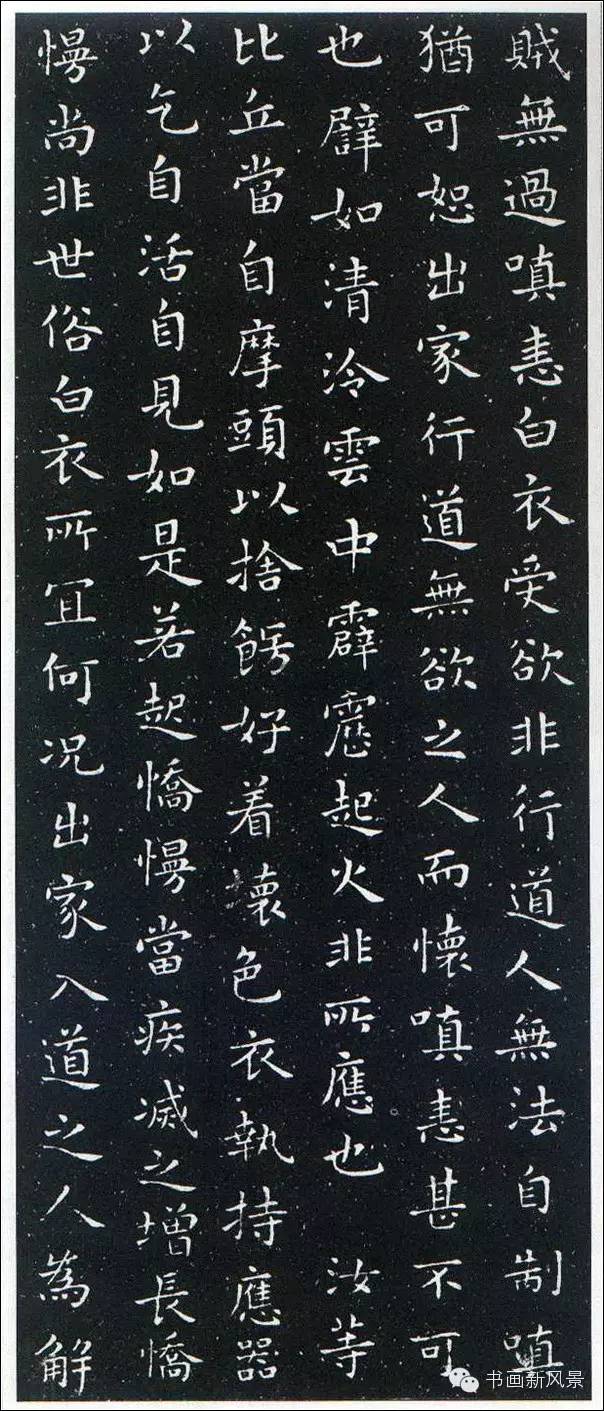 賊無過嗔恚白衣受欲非行道人無法自制嗔
猶可恕出家行道無欲之人而懷嗔恚甚不可
也譬如清泠雲中霹靂起火非所應也 汝等
比丘當自摩頭以捨餝好着壞色衣執持應器
以乞自活自見如是若起憍慢當疾滅之增長憍
慢尚非世俗白衣所宜何况出家入道之人為解
书画新风景